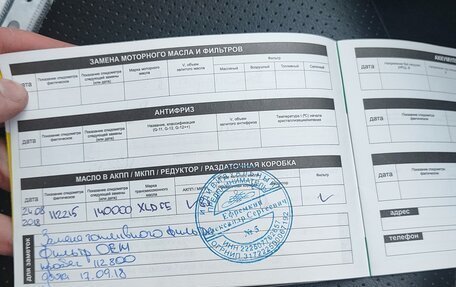 ЗАМЕНА МОТОРНОГО МАСЛА И ФИЛЬТРОВ
дата Показание спидометра фактическое Показание спидометра следующей замены (или дата) Марка моторного масла V, объем залитого масла Фильтр Масляный Воздушный Топливный Салонный
АНТИФРИЗ
дата Показание спидометра фактическое Показание спидометра следующей замены (или дата) Название, классификация (G-11, G-12, G-12++) V, объем залитого антифриза Температура t (°C) начала кристаллизации
МАСЛО В АКПП / МКПП / РЕДУКТОР / РАЗДАТОЧНАЯ КОРОБКА
дата Показание спидометра фактическое Показание спидометра следующей замены (или дата) Марка трансмиссионного АКПП Фильтр
24.08 2018 112215 140000 XLD FE
для заметок
Замена топливного фильтра
Фильтр OEM
пробег 112800
дата 17.09.18
Ефремкин
Александр Сергеевич
№5
ИНН
ОГРНИП
АККУМ
дата
дата
адрес
телефон